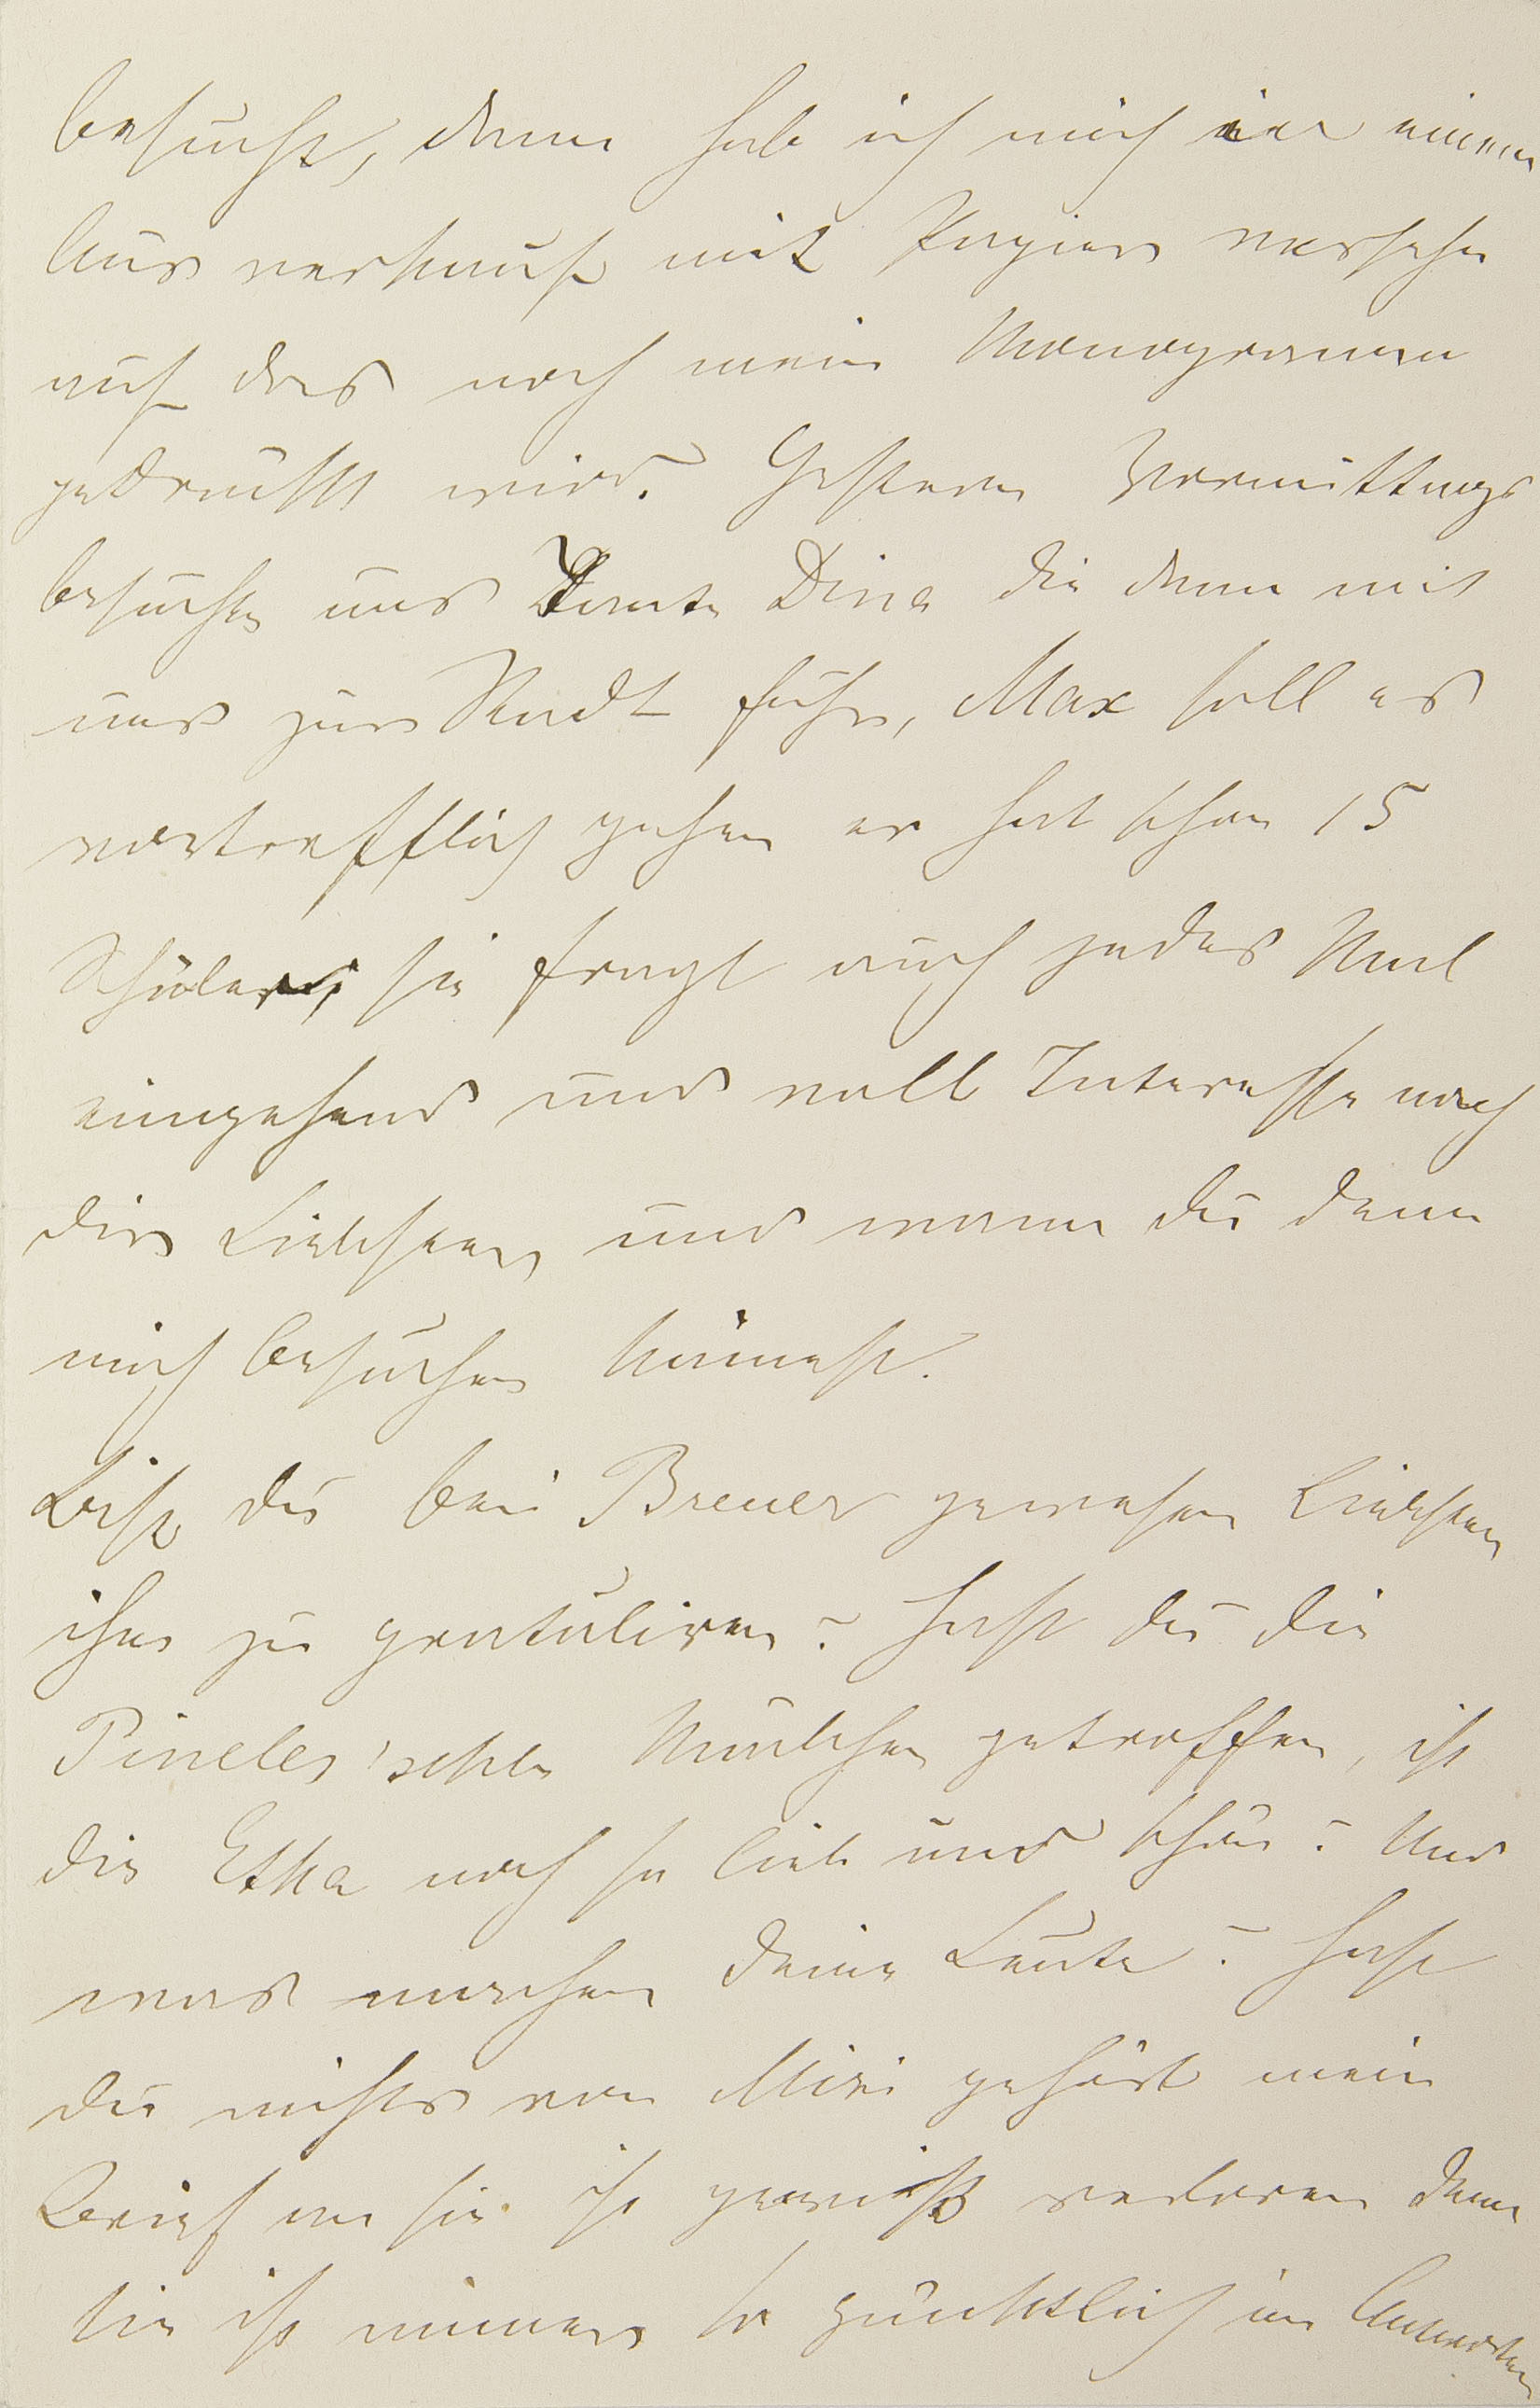 besucht, dann hab ich mich in einem
Ausverkauf mit Papier versehn
auf das noch mein Monogramm
gedruckt wird. Gestern Vormittags
besuchte uns Tante Dina die dann mit
uns zur Stadt fuhr, Max soll es
vortrefflich gehen er hat schon 15
Schüler, sie fragt auch jedes Mal
eingehend und voll Interesse nach
dir Liebster und wann du denn
mich besuchen kömmst.
Bist du bei Breuer gewesen Liebster
ihm zu gratuliren? Hast du die
Pineles'schen Mädchen getroffen, ist
die Etka noch so lieb und schön? Und
was machen deine Leute? Hast
du nichts von Mizi gehört mein
Brief an sie ist gewiß verloren denn
sie ist immer so pünktlich im Antworten